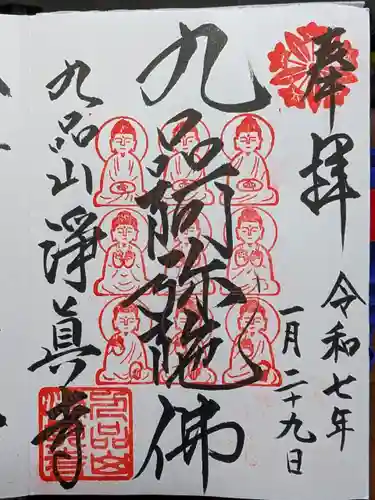 奉拝
令和七年
一月二十九日
九品阿弥陀佛
九品山
淨真寺